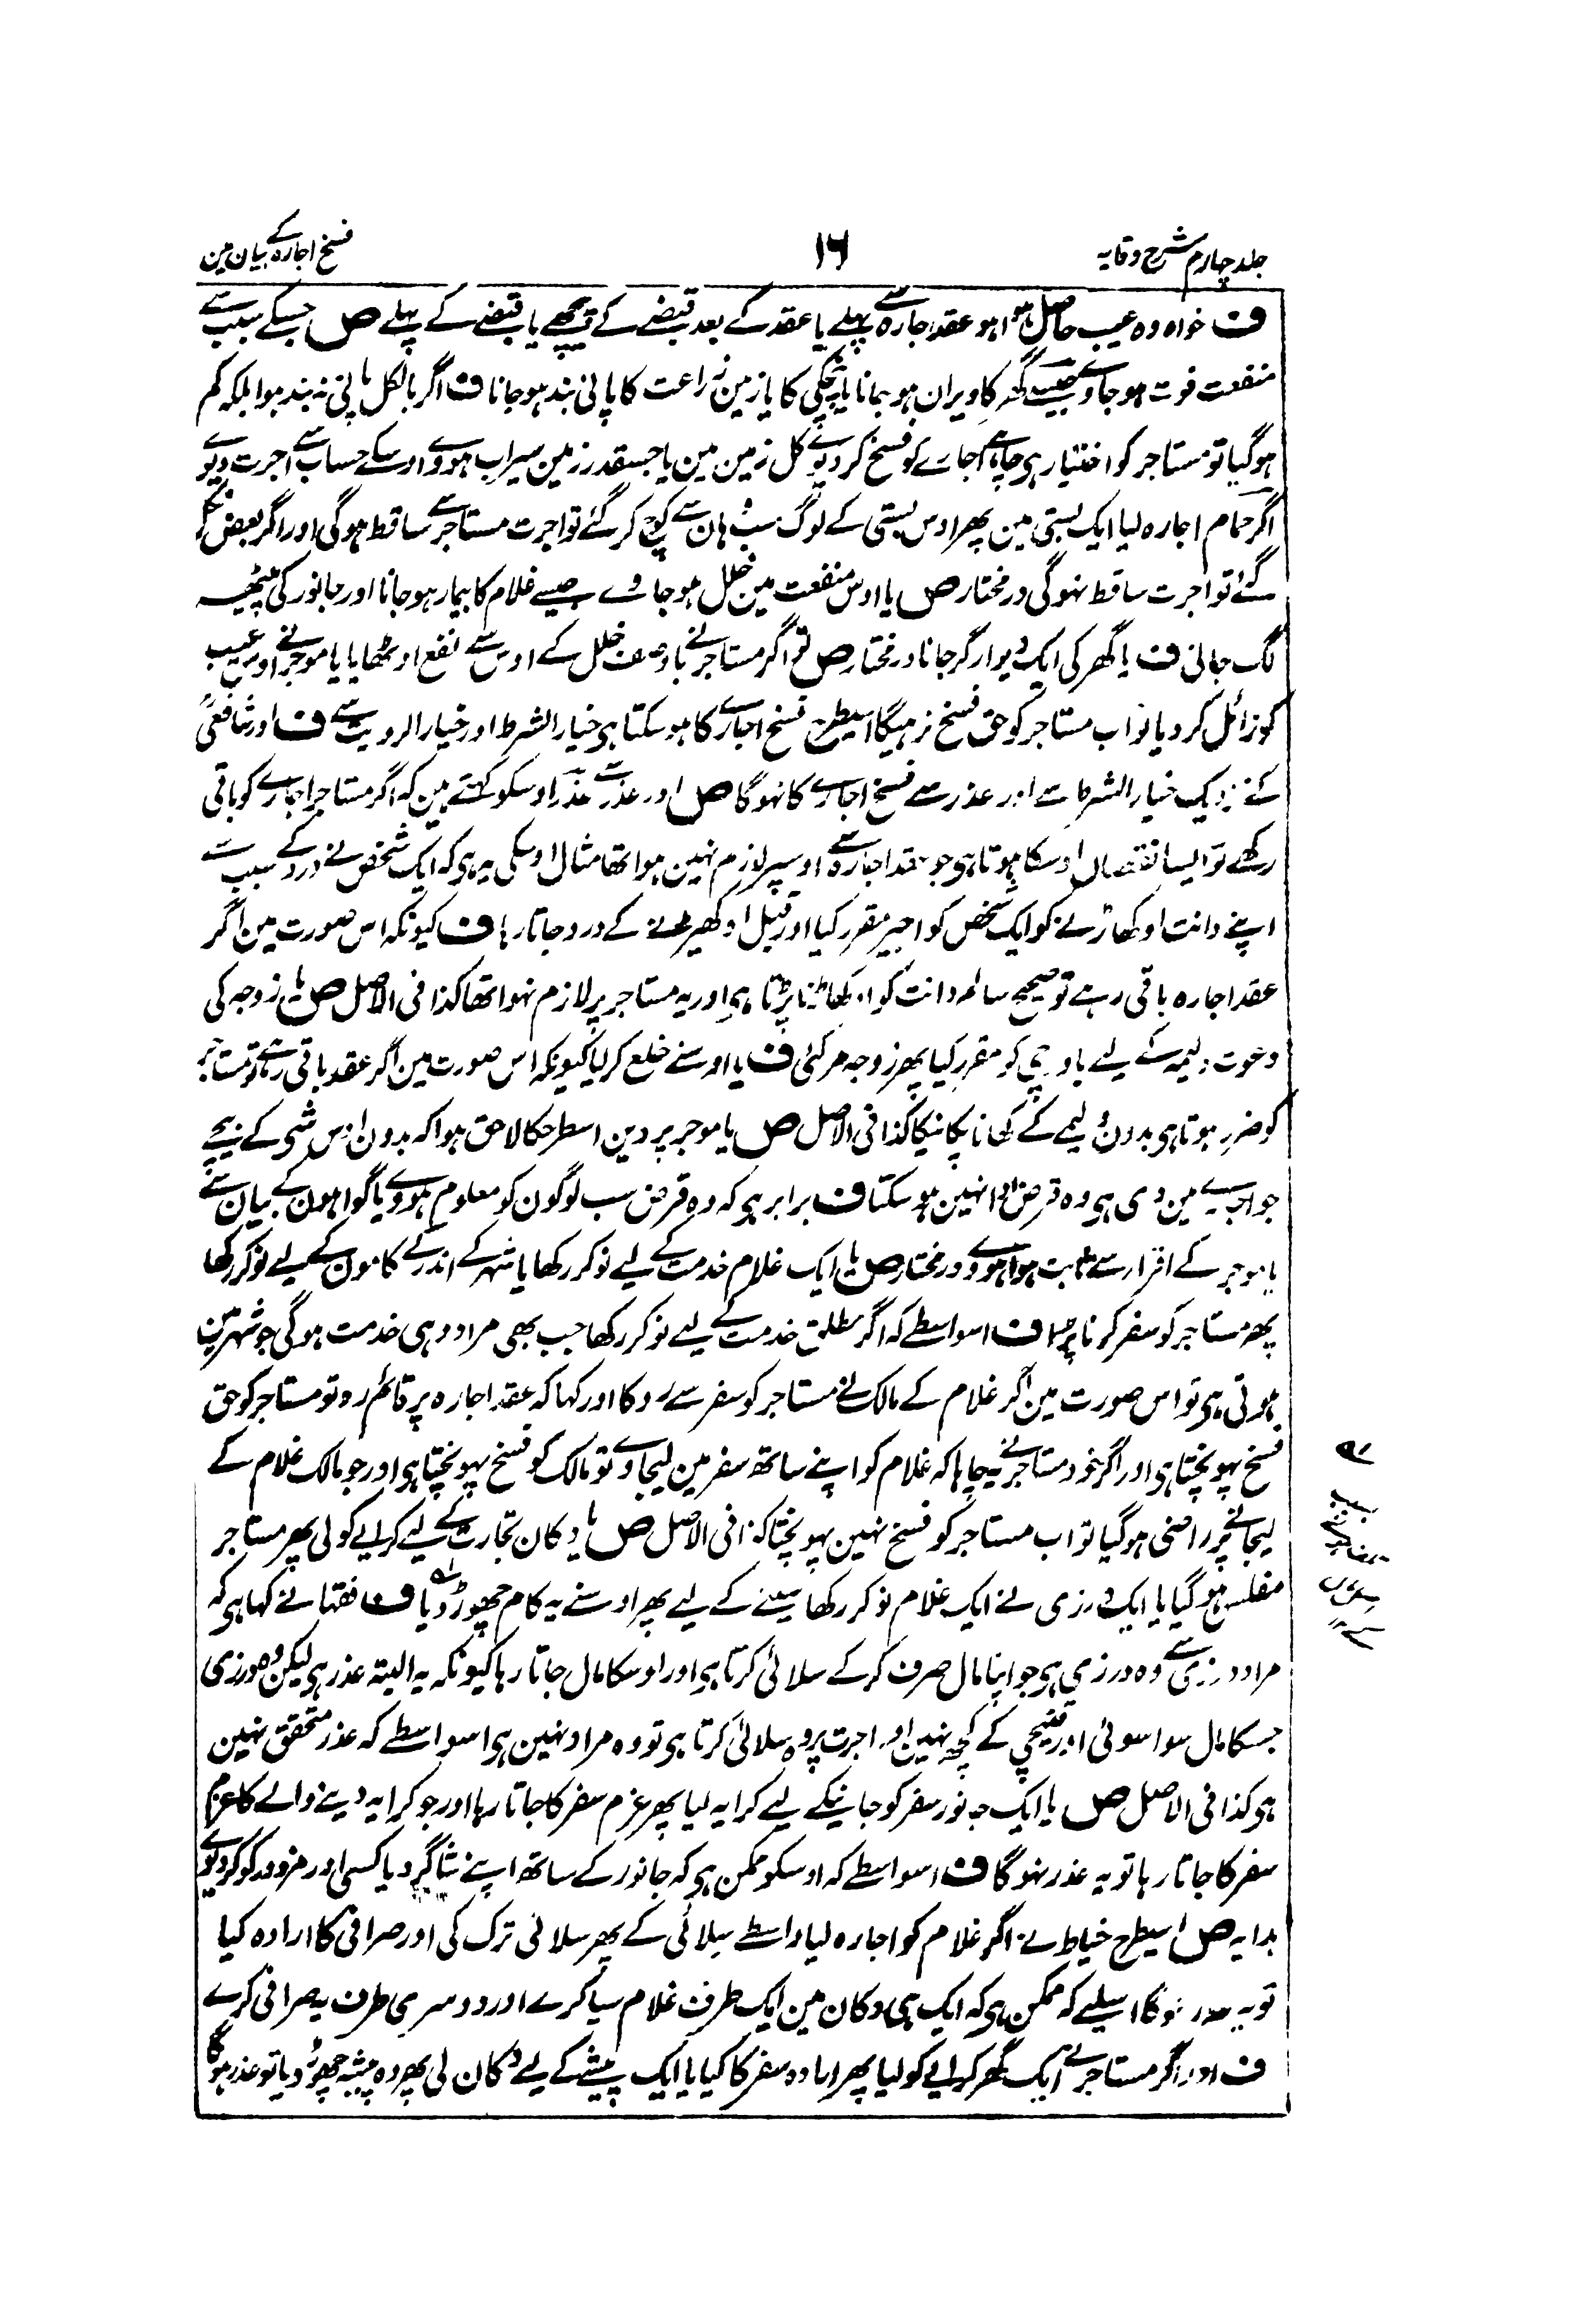 جلد چہارم شرح وقایہ
۱۶
فسخ اجارہ کے بیان مین
ف خواہ وہ عیب حاصل ہوا ہو عقد اجارہ سے پہلے یا عقد کے بعد قبضے کے پیچھے یا قبضے کے پہلے ص جسکے سبب سے
منفعت فوت ہو جاوے جیسے گھر کا ویران ہو جانا یا پنچکی کا یا زمین زراعت کا پانی بند ہو جانا ف اگر بالکل پانی نہ بند ہوا بلکہ کم
ہو گیا تو مستاجر کو اختیار ہی چاہے اجارے کو فسخ کر دیوے کل زمین مین یا جسقدر زمین سیراب ہووے اوسکے حساب سے اجرت دیوے
اگر حمام اجارہ لیا ایک بستی مین پھر اوس بستی کے لوگ سب وہان سے کوچ کر گئے تو اجرت مستاجر سے ساقط ہو گی اور اگر بعض
گئے تو اجرت ساقط نہوگی در مختار ص یا اوس منفعت مین خلل ہو جاوے جیسے غلام کا بیمار ہو جانا اور جانور کی پیٹھ
لگ جانی ف یا گھر کی ایک دیوار گر جانا در مختار ص تو اگر مستاجر نے باوصف خلل کے اوس سے نفع اوٹھایا یا موجر نے اوس عیب
کو زائل کر دیا تو اب مستاجر کو حق فسخ نرہیگا اسیطرح فسخ اجارے کا ہو سکتا ہی خیار الشرط اور خیار الرویت سے ف اور شافعیؒ
کے نزدیک خیار الشرط سے اور عذر سے فسخ اجارے کا نہوگا ص اور عذر سے عذر اوسکو کہتے ہین کہ اگر مستاجر اجارے کو باقی
رکھے تو ایسا نقصان اوسکا ہوتا ہی جو عقد اجارہ سے اوسپر لازم نہین ہوا تھا مثال اوسکی یہ ہی کہ ایک شخص نے درد کے سبب سے
اپنے دانت اوکھاڑنے کو ایک شخص کو اجیر مقرر کیا اور قبل اوکھیڑنے کے درد جاتا رہا ف کیونکہ اس صورت مین اگر
عقد اجارہ باقی رہے تو صحیح سالم دانت کو اوکھاڑنا پڑتا ہی اور یہ مستاجر پر لازم نہوا تھا کذا فی الاصل ص یا زوجہ کی
دعوت ولیمہ کے لیے باورچی کو مقرر کیا پھر زوجہ مر گئی ف یا اوسنے خلع کر لیا کیونکہ اس صورت مین اگر عقد باقی رہے تو مستاجر
کو ضرر ہوتا ہی بدون ولیمے کے کھانا پکانیکا کذا فی الاصل ص یا موجر پر دین اسطرحکا لاحق ہوا کہ بدون اوس شی کے بیچے
جو اجارے مین دی ہی وہ قرض ادا نہین ہو سکتا ف برابر ہی کہ وہ قرض سب لوگون کو معلوم ہووے یا گواہون کے بیان سے
یا موجر کے اقرار سے ثابت ہوا ہووے در مختار ص یا ایک غلام خدمت کے لیے نوکر رکھا یا شہر کے اندر کے کامون کے لیے نوکر رکھا
پھر مستاجر کو سفر کرنا پڑا ف اسواسطے کہ اگر مطلق خدمت کے لیے نوکر رکھا جب بھی مراد وہی خدمت ہو گی جو شہر مین
ہوتی ہی تو اس صورت مین اگر غلام کے مالک نے مستاجر کو سفر سے روکا اور کہا کہ عقد اجارہ پر قائم رہ تو مستاجر کو حق
فسخ پہونچتا ہی اور اگر خود مستاجر نے یہ چاہا کہ غلام کو اپنے ساتھ سفر مین لیجاوے تو مالک کو فسخ پہونچتا ہی اور جو مالک غلام کے
لیجانے پر راضی ہو گیا تو اب مستاجر کو فسخ نہین پہونچتا کذا فی الاصل ص یا دکان تجارت کے لیے کرایے کو لی پھر مستاجر
مفلس ہو گیا یا ایک درزی نے ایک غلام نوکر رکھا سینے کے لیے پھر اوسنے یہ کام چھوڑ دیا ف فقہا نے کہا ہی کہ
مراد درزی سے وہ درزی ہی جو اپنا مال صرف کر کے سلائی کرتا ہی اور اوسکا مال جاتا رہا کیونکہ یہ البتہ عذر ہی لیکن وہ درزی
جسکا مال سوا سوئی اور قینچی کے کچھ نہین اور اجرت پر وہ سلائی کرتا ہی تو وہ مراد نہین ہی اسواسطے کہ عذر متحقق نہین
ہی کذا فی الاصل ص یا ایک جانور سفر کو جانیکے لیے کرایہ لیا پھر عزم سفر کا جاتا رہا اور جو کرایہ دینے والے کا عزم
سفر کا جاتا رہا تو یہ عذر نہوگا ف اسواسطے کہ اوسکو ممکن ہی کہ جانور کے ساتھ اپنے شاگرد یا کسی اور مزدور کو کر دیوے
ہدایہ ص اسیطرح خیاط نے اگر غلام کو اجارہ لیا واسطے سلائی کے پھر سلائی ترک کی اور صرافی کا ارادہ کیا
تو یہ عذر نہوگا اسلیے کہ ممکن ہی کہ ایک ہی دکان مین ایک طرف غلام سیا کرے اور دوسری طرف یہ صرافی کرے
ف اور اگر مستاجر نے ایک گھر کرایے کو لیا پھر ارادہ سفر کا کیا یا ایک پیشے کے لیے دکان لی پھر وہ پیشہ چھوڑ دیا تو عذر ہوگا